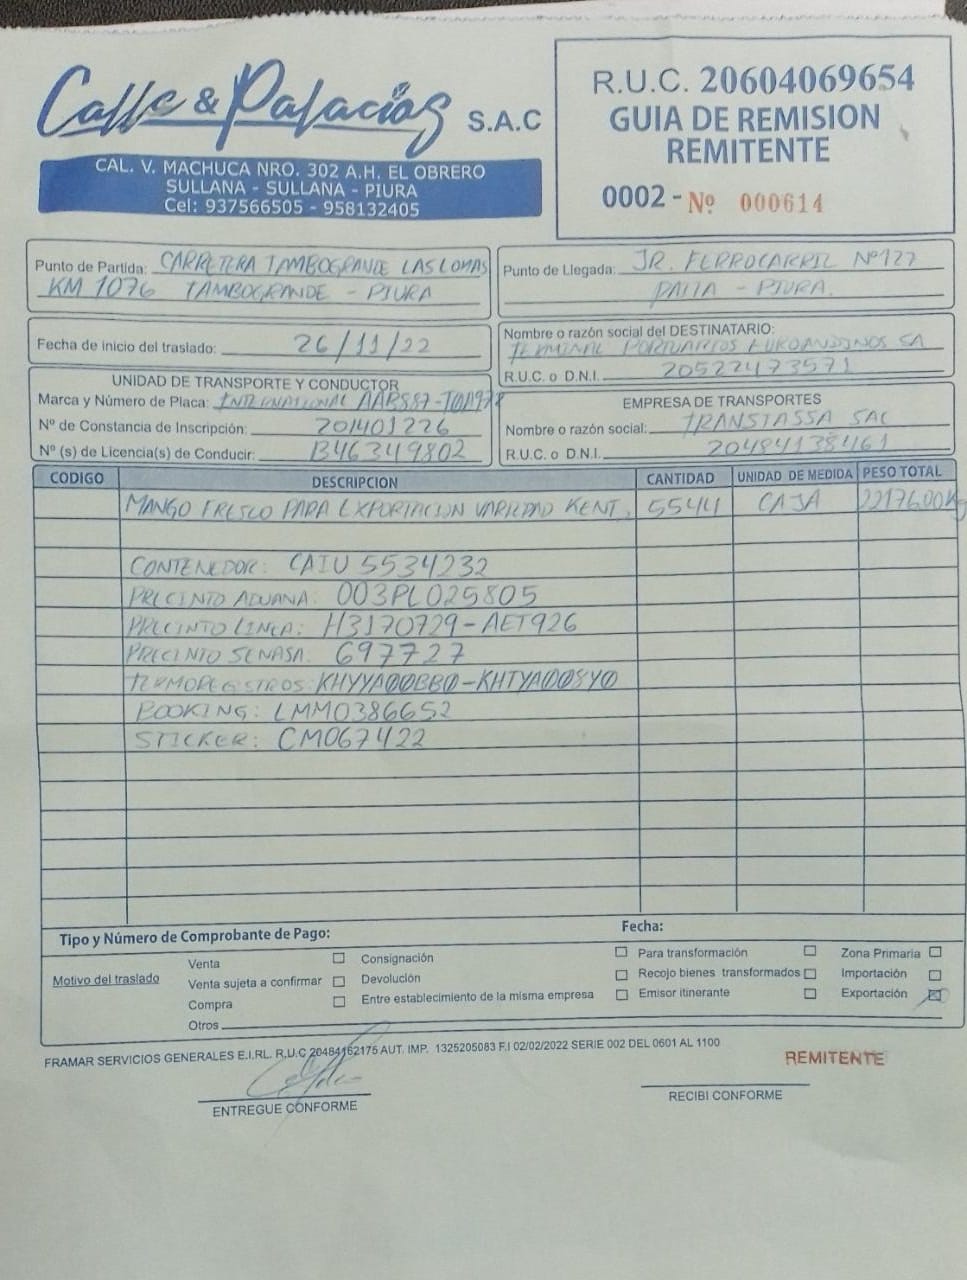 Calle & Palacios S.A.C
CAL. V. MACHUCA NRO. 302 A.H. EL OBRERO
SULLANA - SULLANA - PIURA
Cel: 937566505 - 958132405
R.U.C. 20604069654
GUIA DE REMISION
REMITENTE
0002 - Nº 000614
Punto de Partida: CARRETERA TAMBOGRANDE LAS LOMAS
KM 1076 TAMBOGRANDE - PIURA
Punto de Llegada: JR. FERROCARRIL Nº127
PAITA - PIURA.
Fecha de inicio del traslado: 26/11/22
Nombre o razón social del DESTINATARIO:
TERMINAL PORTUARIOS EUROANDINOS SA
R.U.C. o D.N.I. 20522473571
UNIDAD DE TRANSPORTE Y CONDUCTOR
Marca y Número de Placa: INTERNATIONAL
Nº de Constancia de Inscripción: 201401226
Nº (s) de Licencia(s) de Conducir: B46349802
EMPRESA DE TRANSPORTES
Nombre o razón social: TRANSTASSA SAC
R.U.C. o D.N.I. 20484138461
CODIGO DESCRIPCION CANTIDAD UNIDAD DE MEDIDA PESO TOTAL
MANGO FRESCO PARA EXPORTACION VARIEDAD KENT. 5544 CAJA
CONTENEDOR: CAIU 5534232
PRECINTO ADUANA: 003PL025805
PRECINTO LINEA: H3170729-AET926
PRECINTO SENASA: 697727
TERMOREGISTROS:
BOOKING: LMM0386652
STICKER: CM067422
Tipo y Número de Comprobante de Pago: Fecha:
Motivo del traslado
Venta Consignación Para transformación Zona Primaria
Venta sujeta a confirmar Devolución Recojo bienes transformados Importación
Compra Entre establecimiento de la misma empresa Emisor itinerante Exportación
Otros
FRAMAR SERVICIOS GENERALES E.I.RL. R.U.C 20484162175 AUT. IMP. 1325205083 F.I 02/02/2022 SERIE 002 DEL 0601 AL 1100
REMITENTE
ENTREGUE CONFORME
RECIBI CONFORME